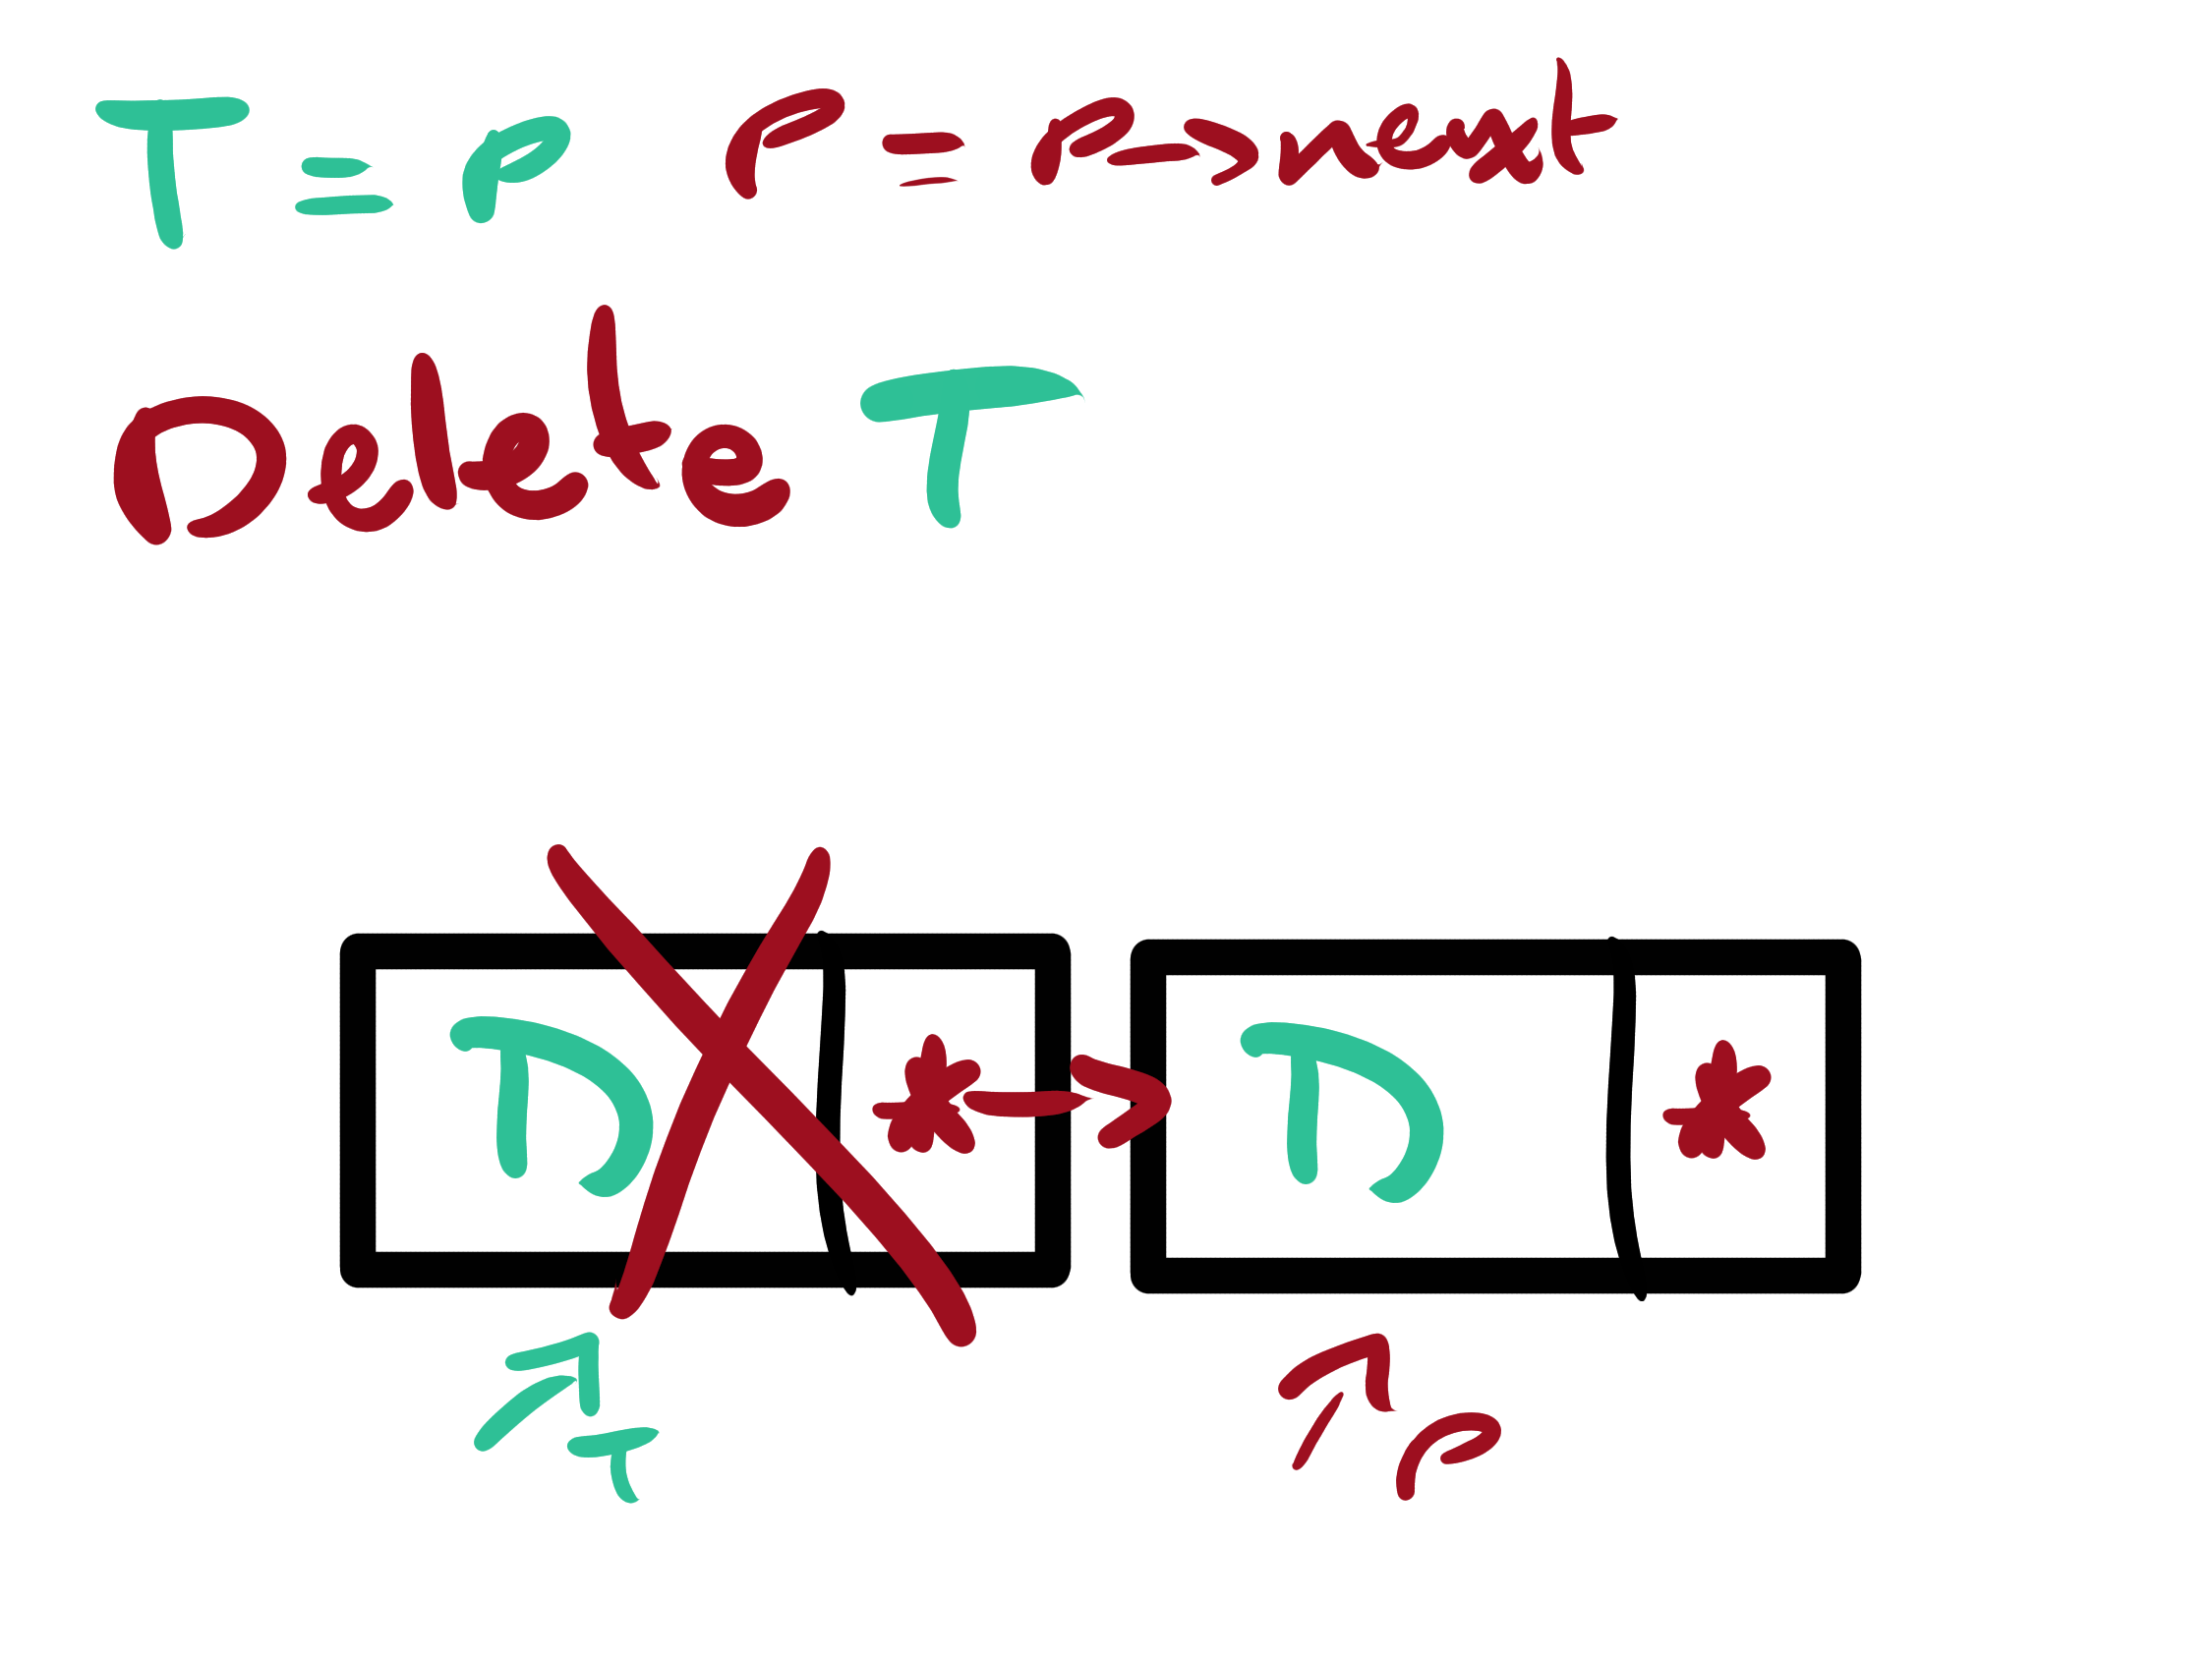 T = P P = P → next
Delete T
D * → D *
T P